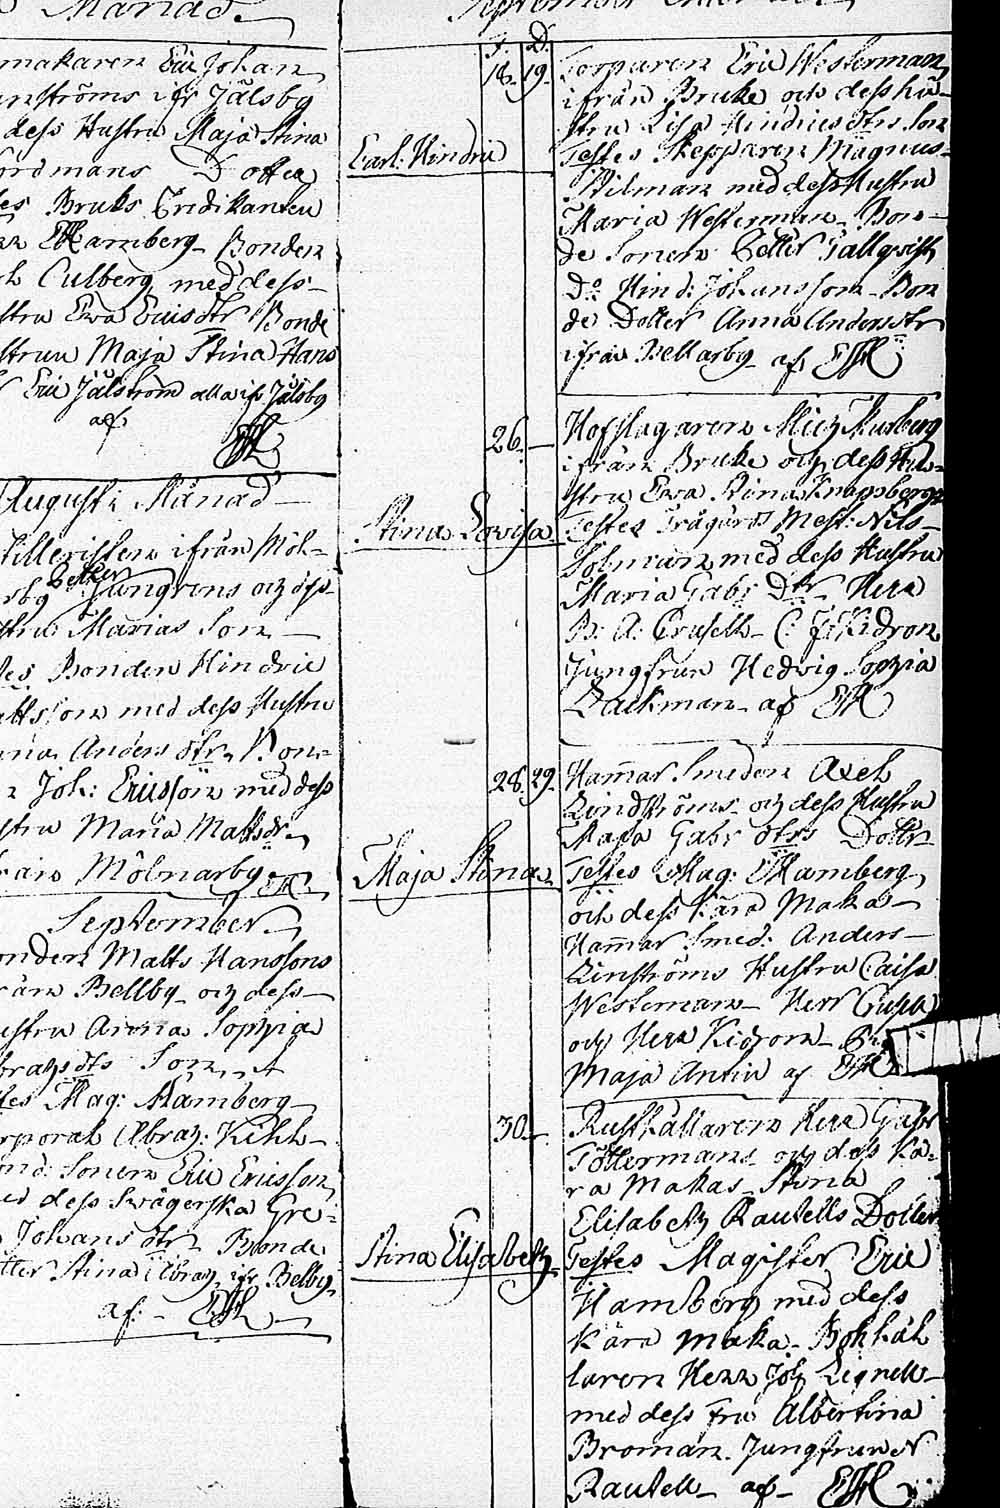 Månad.
makaren Eric Johan
ströms ifr Jälsby
dess Hustru Maja Stina
Nordmans Dotter
Testes Bruks Predikanten
Herr EHamberg Bonden
Culberg med dess
Hustru Ewa Ericsdtr Bonde
Hustrun Maja Stina Hans
Eric Jälström alla ifr Jälsby
af EH
Augusti Månad
ifrån Möl-
narby Petter Ljungrens och dess
Hustru Marias Son
Testes Bonden Hindric
Mattsson med dess Hustru
Anna Anders dtr. Bon-
Joh: Ericsson med dess
Hustru Maria Mattsdr
ifrån Mölnarby EH
September
Bonden Matts Hanssons
ifrån Bellby och dess
Hustru Anna Sophia
Abrahsdts Son
Testes Mag: Hamberg
Corporal Abrah: Kihl-
Bond: Sonen Eric Ericsson
med dess Swägerska Gre-
Johans dtr Bonde
Dotter Stina Abrah. ifr Belby
af EH
September
F. D.
18. 19.
Carl Hindric
Torparen Eric Westerman
ifrån Bruke och dess hu-
stru Lisa Hindricsdtrs Son
Testes Skepparen Magnus
Wilman med dess Hustru
Maria Westerman Bon-
de Sonen Petter Tallqvist
Do Hind: Johansson Bon
de Dotter Anna Andersdtr
ifrån Bellarby af EH
26.
Stina Lovisa
Hofslagaren Mich Murberg
ifrån Bruke och dess Hu-
stru Ewa Stina Knapsbergs
Testes Trägårds Mest: Nils
Sohman med dess Hustru
Maria Gabr Dtr Herr
B: A: Crusell C: F: Kidron
Jungfrun Hedwig Sophia
Backman af EH
28. 29.
Maja Stina
Hamar Smeden Axel
Lindströms och dess Hustru
Maja Gabr dtrs Dotter
Testes Mag: EHamberg
och dess Kära Maka
Hamar Smed: Anders
Linströms Hustru Caisa
Westerman Herr Crusell
och Herr Kidron
Maja Antin af EH
30.
Stina Elisabeth
Rusthållaren Herr Gabr
Töttermans och dess Kä-
ra Makas Stina
Elisabeth Rautells Dotter
Testes Magister Eric
Hamberg med dess
Kära Maka Bokhål
laren Herr Joh Lignell
med dess fru Albertina
Broman. Jungfrun N
Rautell af EH